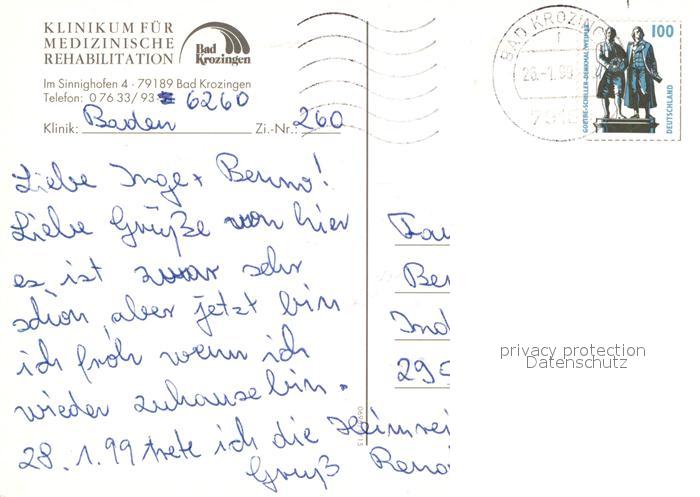 KLINIKUM FÜR
MEDIZINISCHE
REHABILITATION
Bad
Krozingen
Im Sinnighofen 4 · 79189 Bad Krozingen
Telefon: 0 76 33 / 93 6260
Klinik: Baden Zi.-Nr.: 260
Liebe Inge + Benno!
Liebe Grüße von hier
es ist zwar sehr
schön, aber jetzt bin
ich froh wenn ich
wieder zuhause bin.
28.1.99 trete ich die Heimrei
Gruß Reno
BAD KROZING
26.-1.99
100
GOETHE-SCHILLER-DENKMAL WEIMAR
DEUTSCHLAND
Fam
Ben
Ind
29
privacy protection
Datenschutz